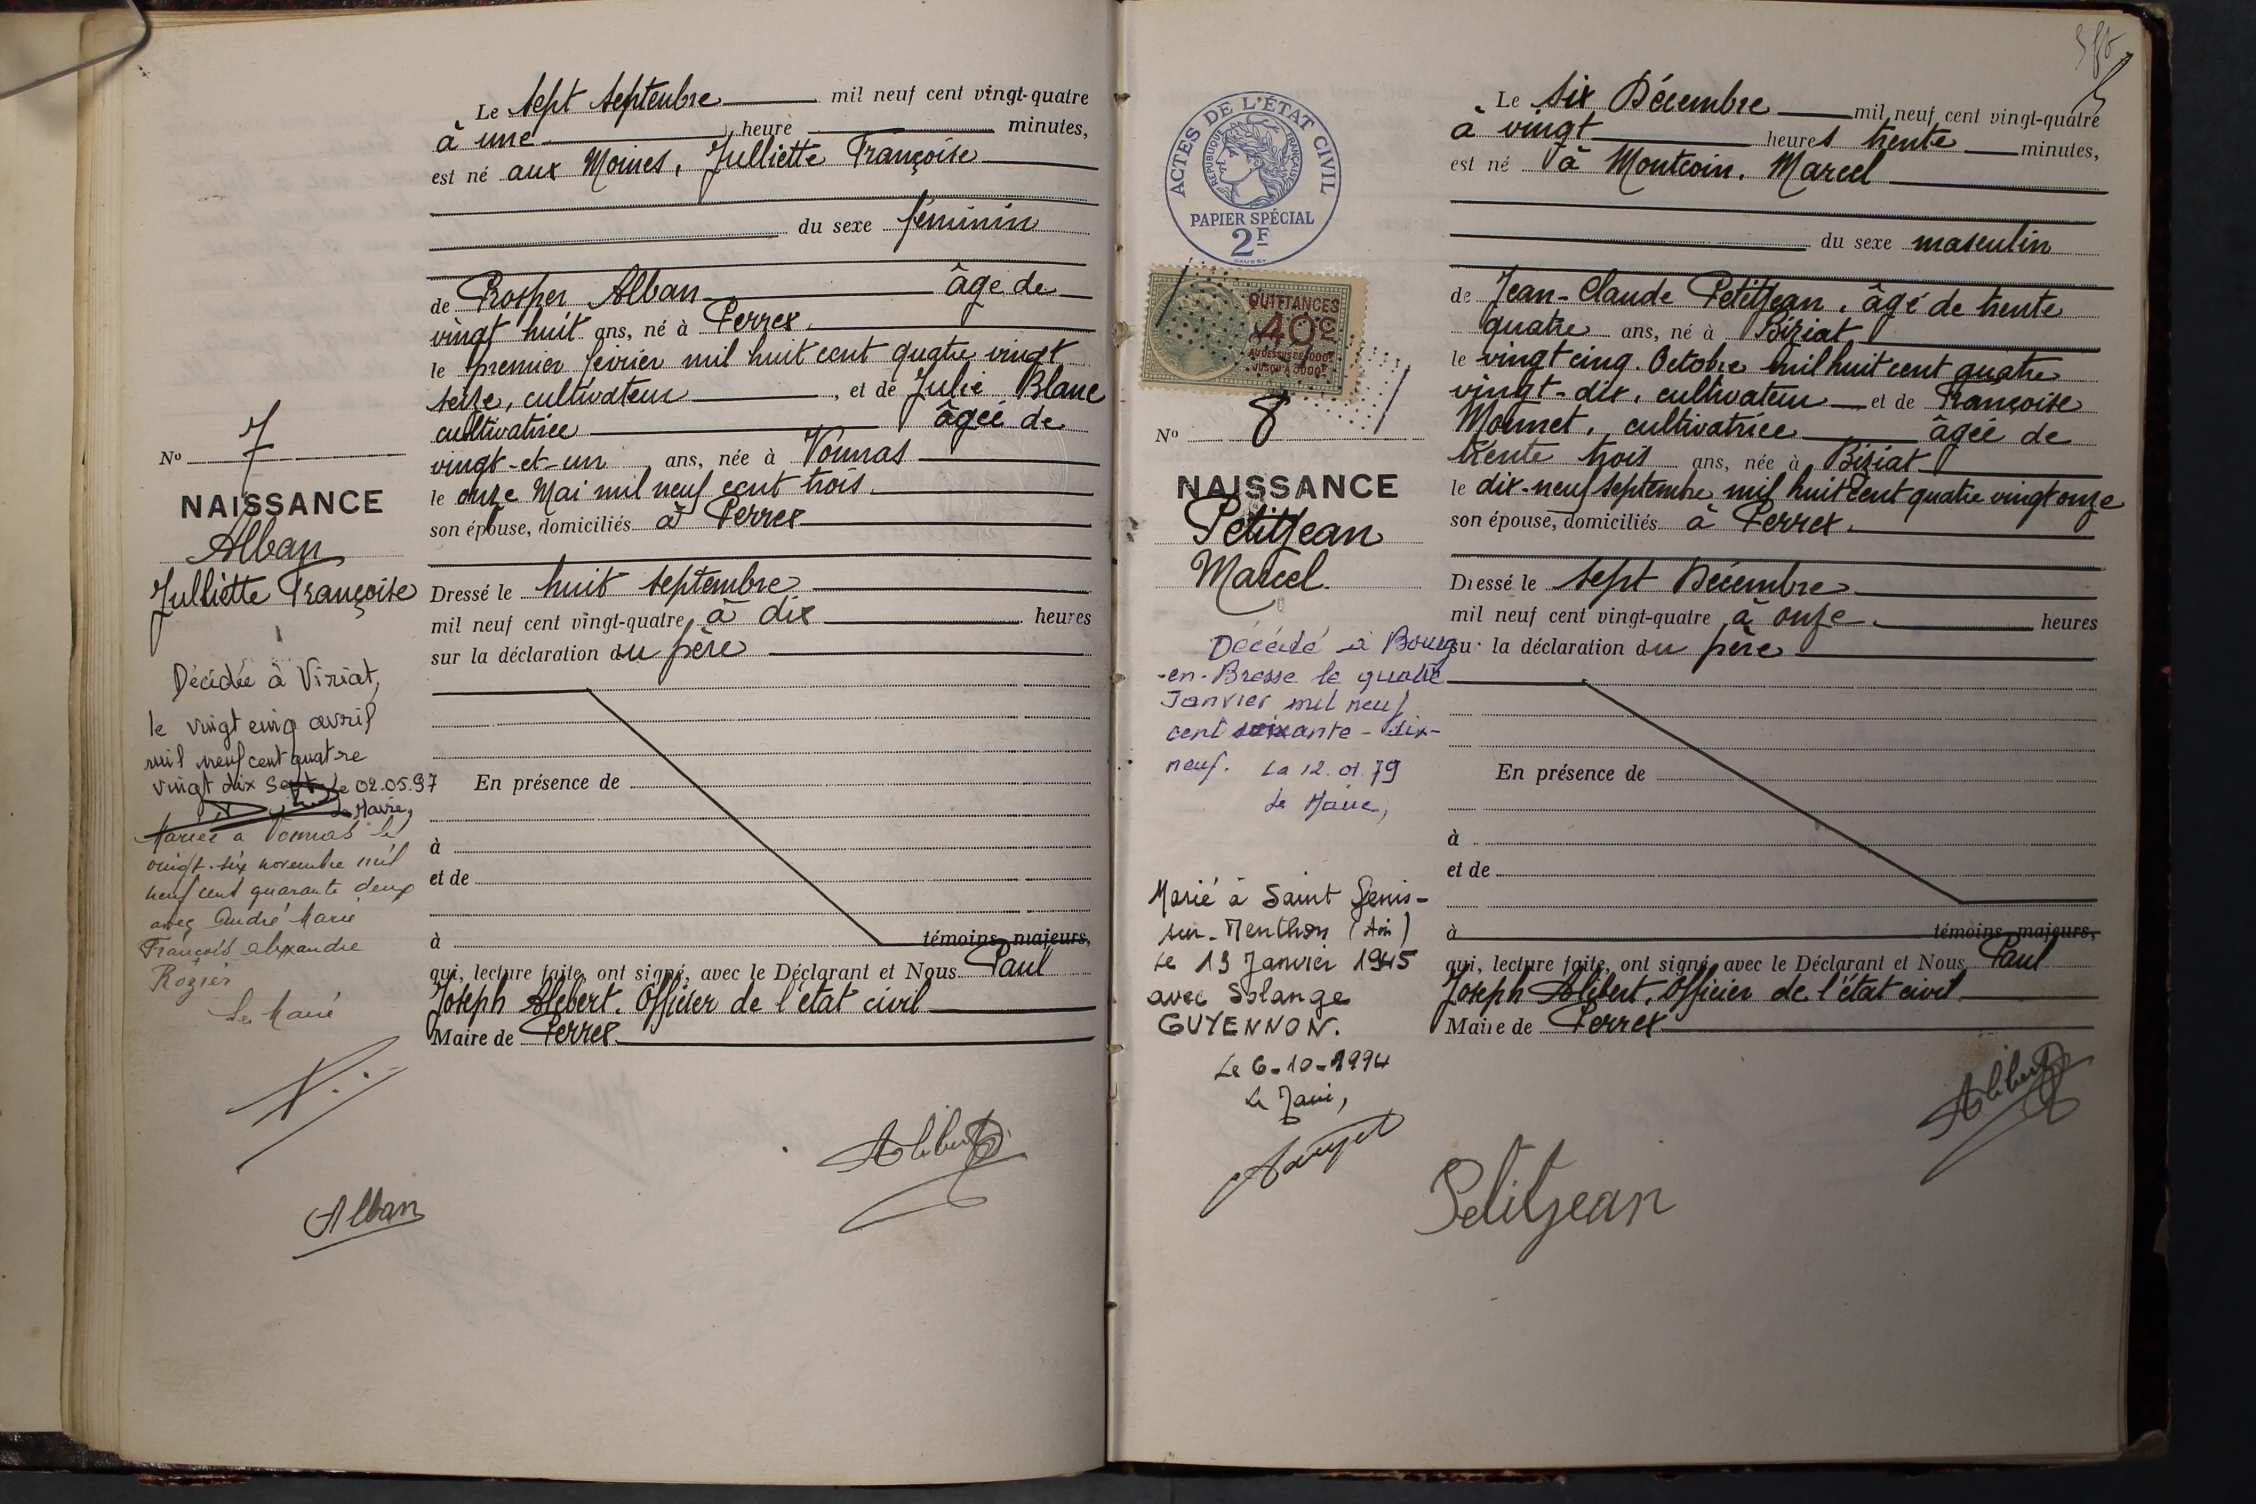 Le sept septembre mil neuf cent vingt-quatre
à une heure minutes,
est né aux Moines, Julliette Françoise
du sexe féminin
de Prosper Alban âgé de
vingt huit ans, né à Perrex
le premier février mil huit cent quatre vingt
seize, cultivateur, et de Julie Blanc
cultivatrice âgée de
vingt-et-un ans, née à Vonnas
le onze Mai mil neuf cent trois
son épouse, domiciliés à Perrex
Dressé le huit septembre
mil neuf cent vingt-quatre à dix heures
sur la déclaration du père
En présence de
à
et de
à témoins majeurs,
qui, lecture faite, ont signé, avec le Déclarant et Nous Paul
Joseph Alibert. Officier de l'état civil
Maire de Perrex
No 7
NAISSANCE
Alban
Julliette Françoise
Décédée à Viriat,
le vingt cinq avril
mil neuf cent quatre
vingt dix sept le 02.05.97
Le Maire,
Mariée à Vonnas le
vingt-six novembre mil
neuf cent quarante deux
avec André Marie
François Alexandre
Rozier
Le Maire
Alban
Alibert
ACTES DE L'ÉTAT CIVIL
RÉPUBLIQUE FRANÇAISE
PAPIER SPÉCIAL
2F
QUITTANCES
40c
AU DESSUS DE 1000F
JUSQU'À 3000F
No 8
NAISSANCE
Petitjean
Marcel
Décédé à Bourg
-en-Bresse le quatre
Janvier mil neuf
cent soixante-dix-
neuf. Le 12.01.79
Le Maire,
Marié à Saint Genis-
sur-Menthon (Ain)
Le 13 Janvier 1945
avec Solange
GUYENNON.
Le 6-10-1994
Le Maire,
Le six Décembre mil neuf cent vingt-quatre
à vingt heures trente minutes,
est né à Montcoin, Marcel
du sexe masculin
de Jean-Claude Petitjean, âgé de trente
quatre ans, né à Biziat
le vingt cinq Octobre mil huit cent quatre
vingt-dix, cultivateur et de Françoise
Monnet, cultivatrice âgée de
trente trois ans, née à Biziat
le dix-neuf septembre mil huit cent quatre vingt onze
son épouse, domiciliés à Perrex.
Dressé le sept Décembre
mil neuf cent vingt-quatre à onze heures
sur la déclaration du père
En présence de
à
et de
à témoins majeurs,
qui, lecture faite, ont signé, avec le Déclarant et Nous Paul
Joseph Alibert, Officier de l'état civil
Maire de Perrex
Alibert
Petitjean